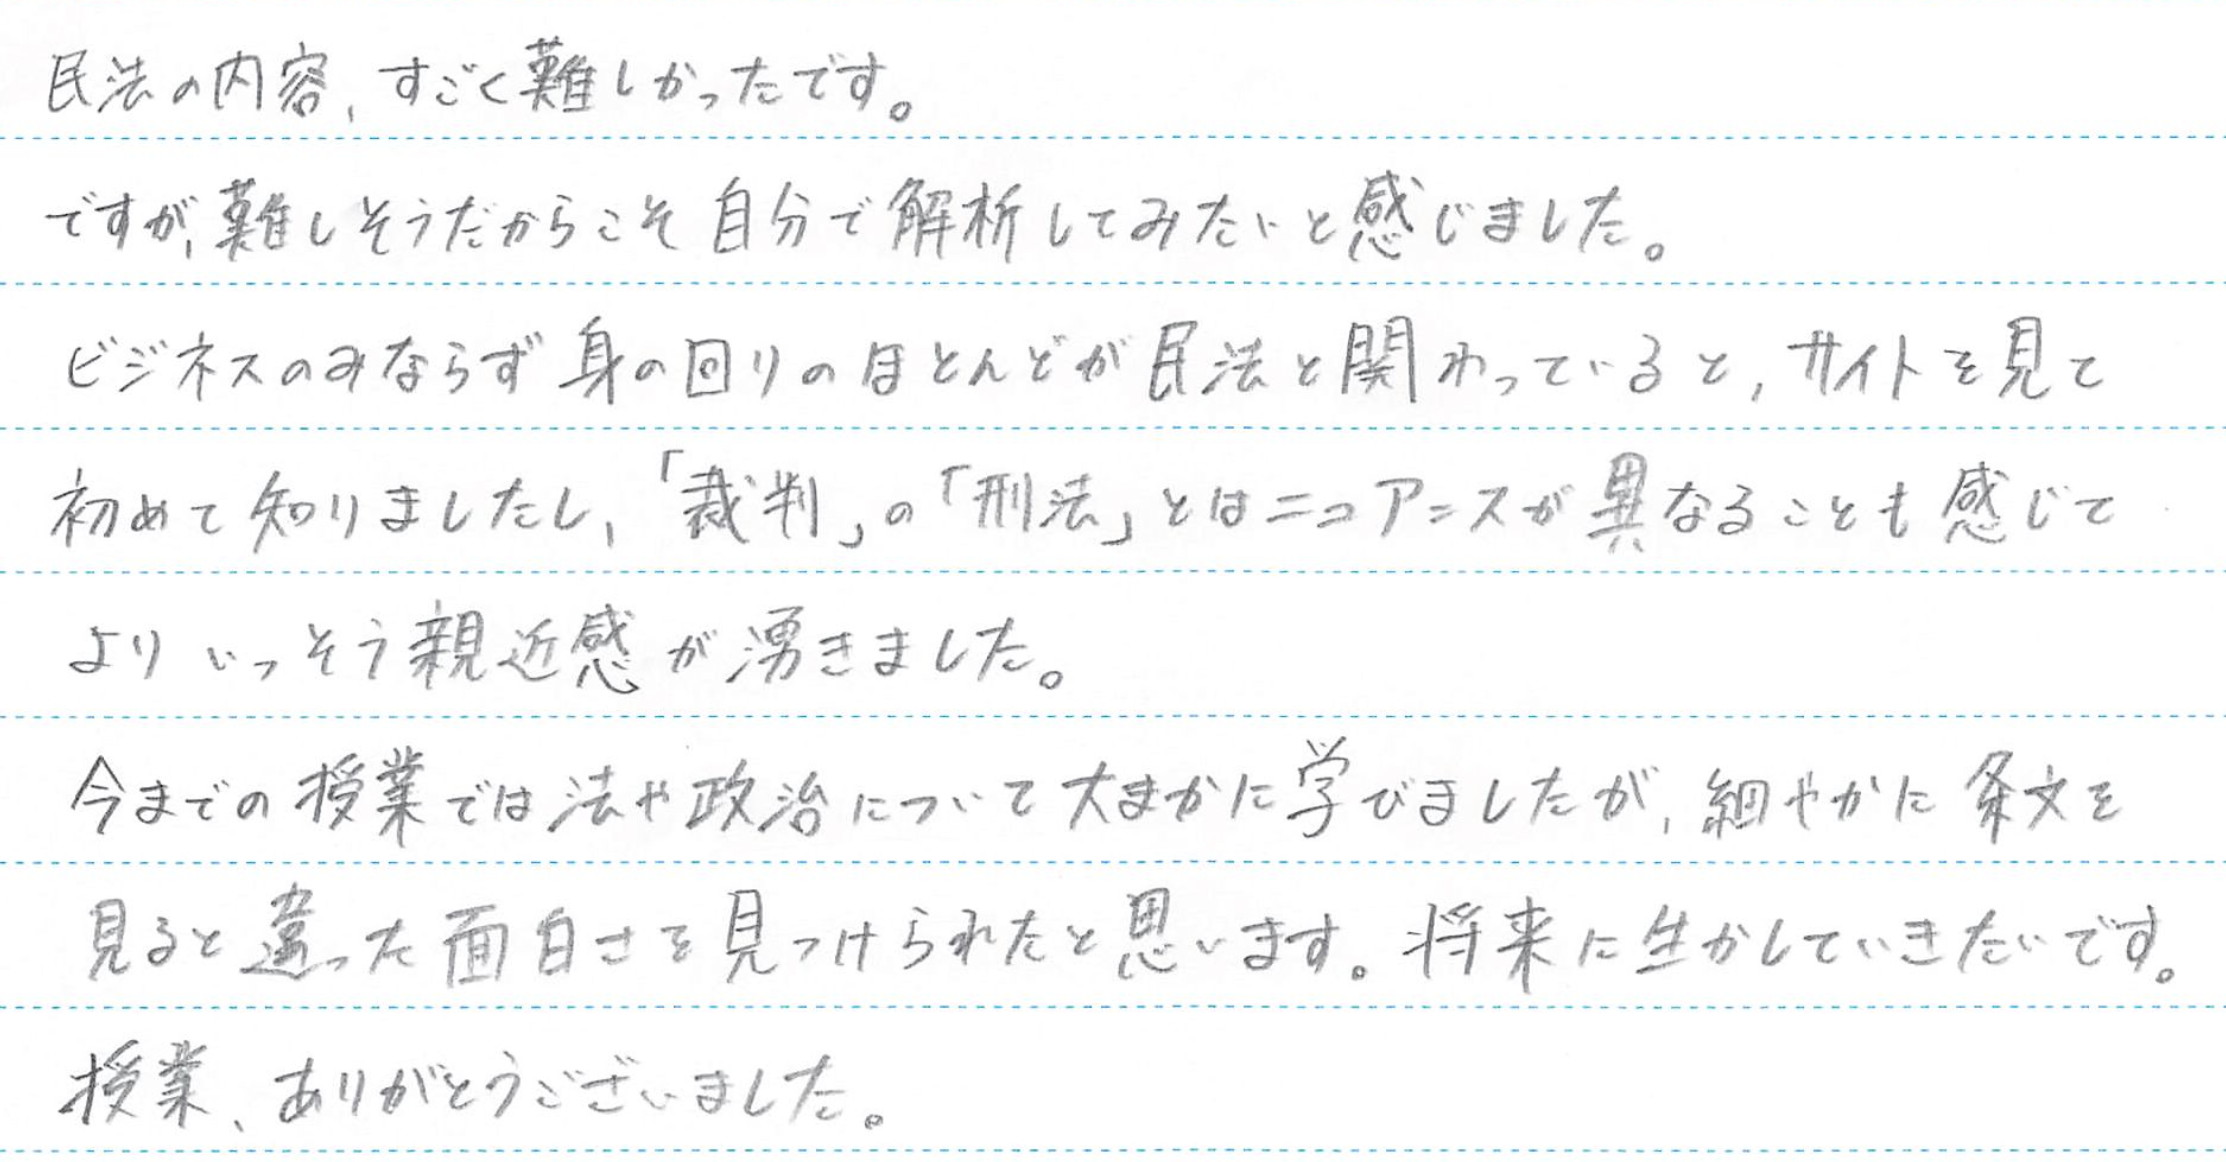 民法の内容、すごく難しかったです。
ですが、難しそうだからこそ自分で解析してみたいと感じました。
ビジネスのみならず身の回りのほとんどが民法と関わっていると、サイトを見て
初めて知りましたし、「裁判」の「刑法」とはニュアンスが異なることも感じて
よりいっそう親近感が湧きました。
今までの授業では法や政治について大まかに学びましたが、細やかに条文を
見ると違った面白さを見つけられたと思います。将来に生かしていきたいです。
授業、ありがとうございました。